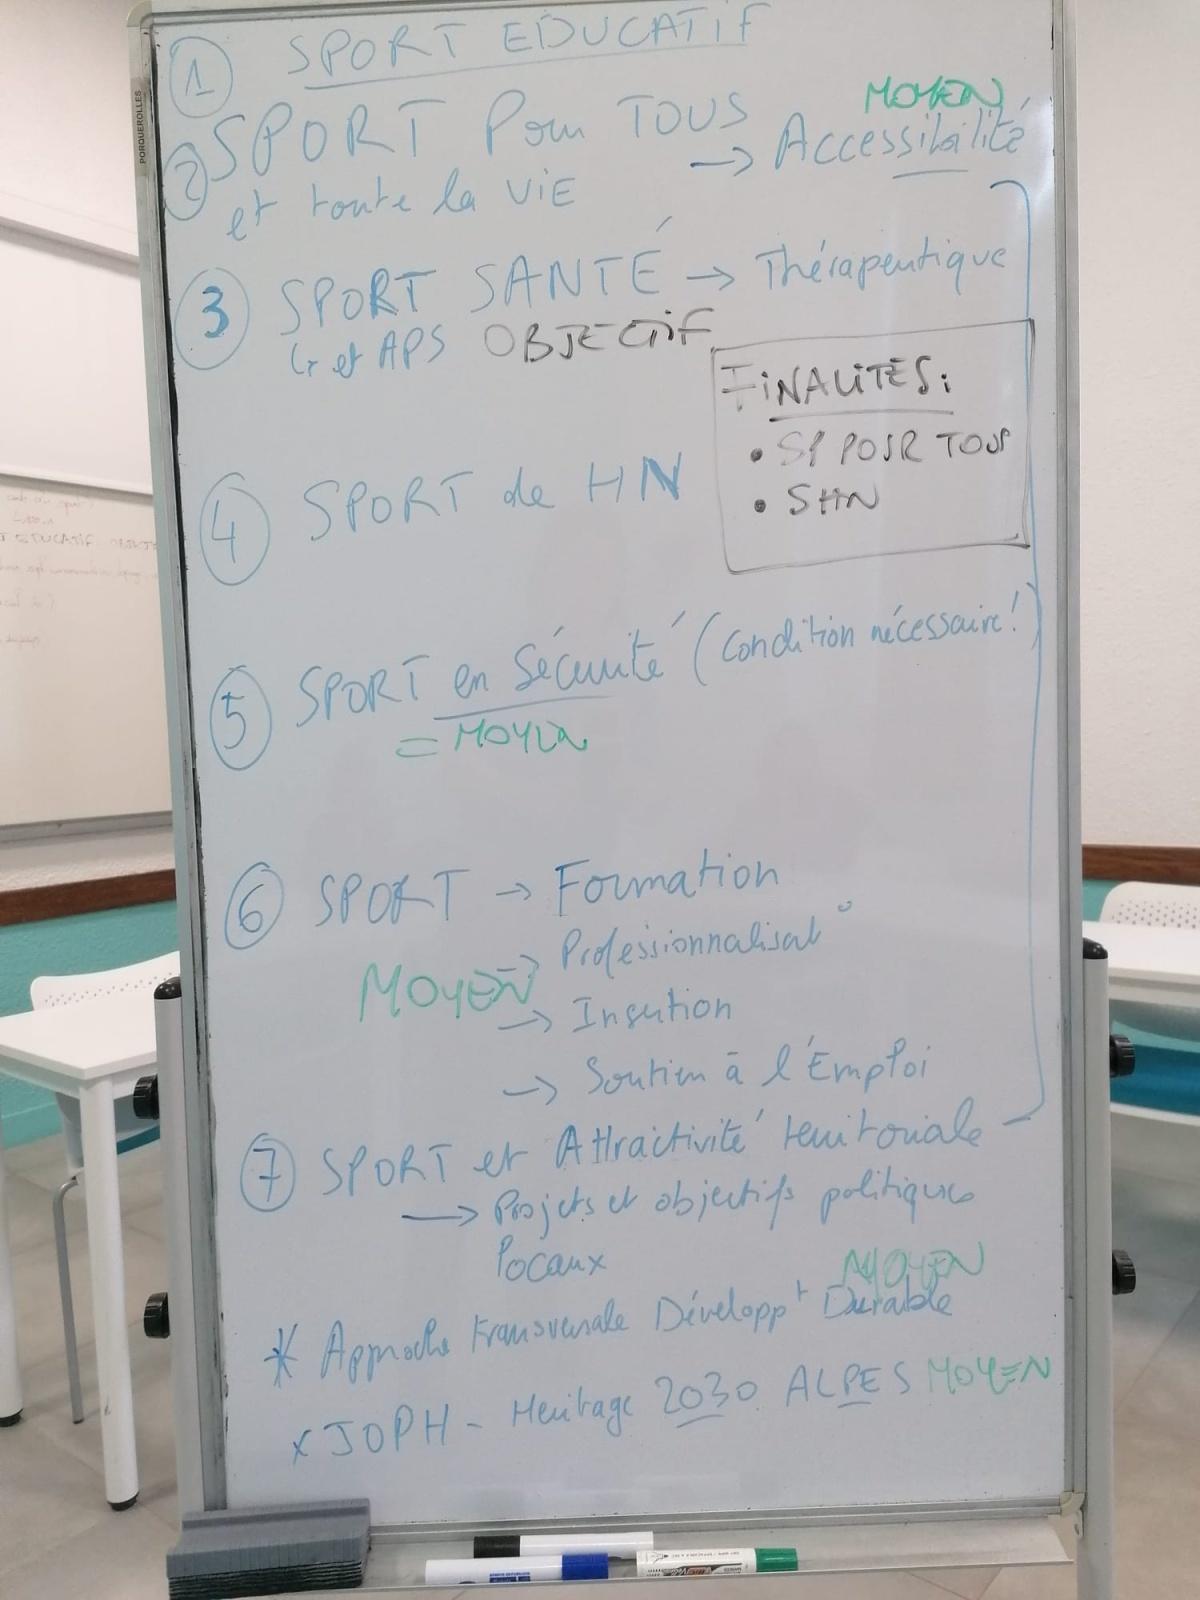 PORQUEROLLES
① SPORT EDUCATIF
② SPORT Pour TOUS
et toute la VIE
MOYEN
→ Accessibilité
③ SPORT SANTÉ → Thérapeutique
↳ et APS OBJECTIF
FINALITÉS:
• SP POUR TOUS
• SHN
④ SPORT de HN
⑤ SPORT en Sécurité (Condition nécessaire!)
= MOYEN
⑥ SPORT → Formation
→ Professionnalisat°
MOYEN
→ Insertion
→ Soutien à l'Emploi
⑦ SPORT et Attractivité territoriale
→ Projets et objectifs politiques
locaux
MOYEN
* Approche transversale Développt Durable
x JOPH - Heritage 2030 ALPES MOYEN